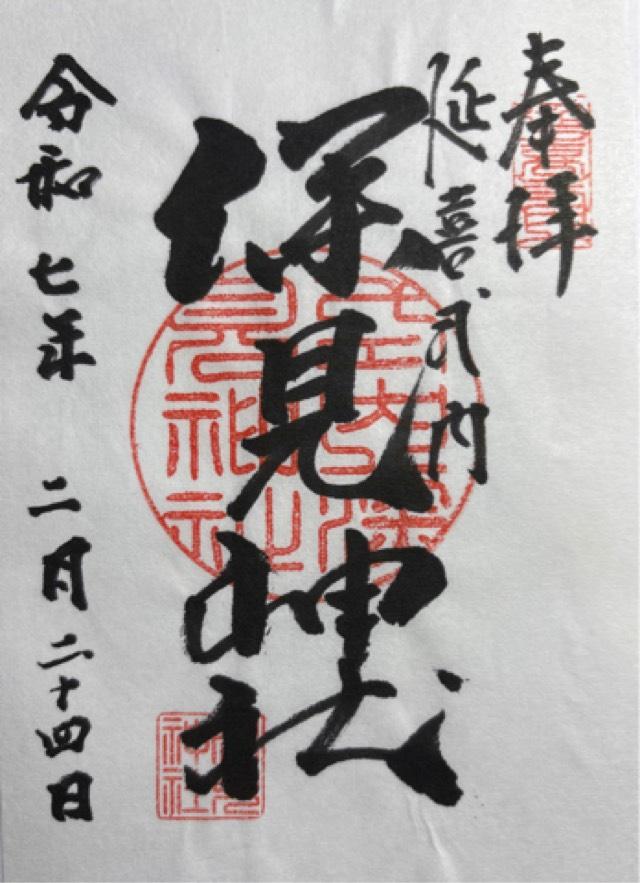 奉拝
延喜式内
深見神社
令和七年 二月二十四日